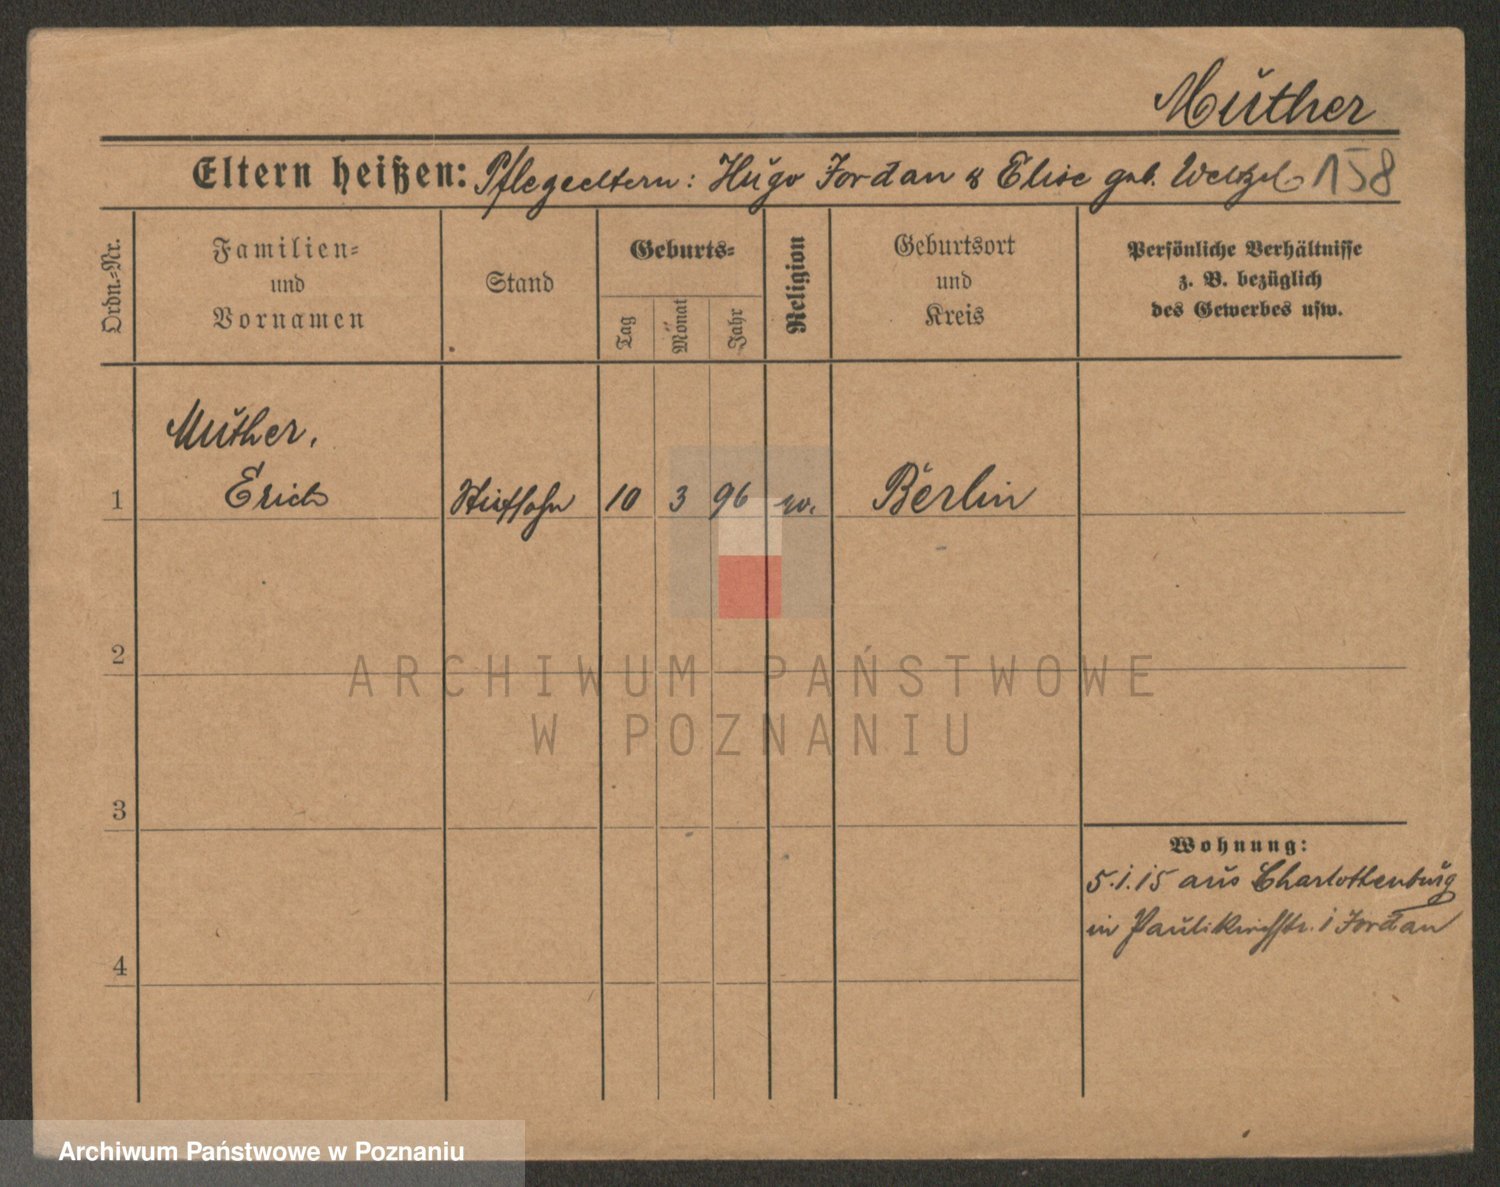 Muther
Eltern heißen: Pflegeeltern: Hugo Jordan & Elise geb. Weltzel 158
Ordn.-Nr.
Familien-
und
Vornamen
Stand
Geburts-
Tag
Monat
Jahr
Religion
Geburtsort
und
Kreis
Persönliche Verhältnisse
z. B. bezüglich
des Gewerbes usw.
Muther,
1 Erich Stiefsohn 10 3 96 ev. Berlin
2
ARCHIWUM PAŃSTWOWE
W POZNANIU
3
Wohnung:
5.1.15 aus Charlottenburg
in Paulikirchstr. 1 Jordan
4
Archiwum Państwowe w Poznaniu